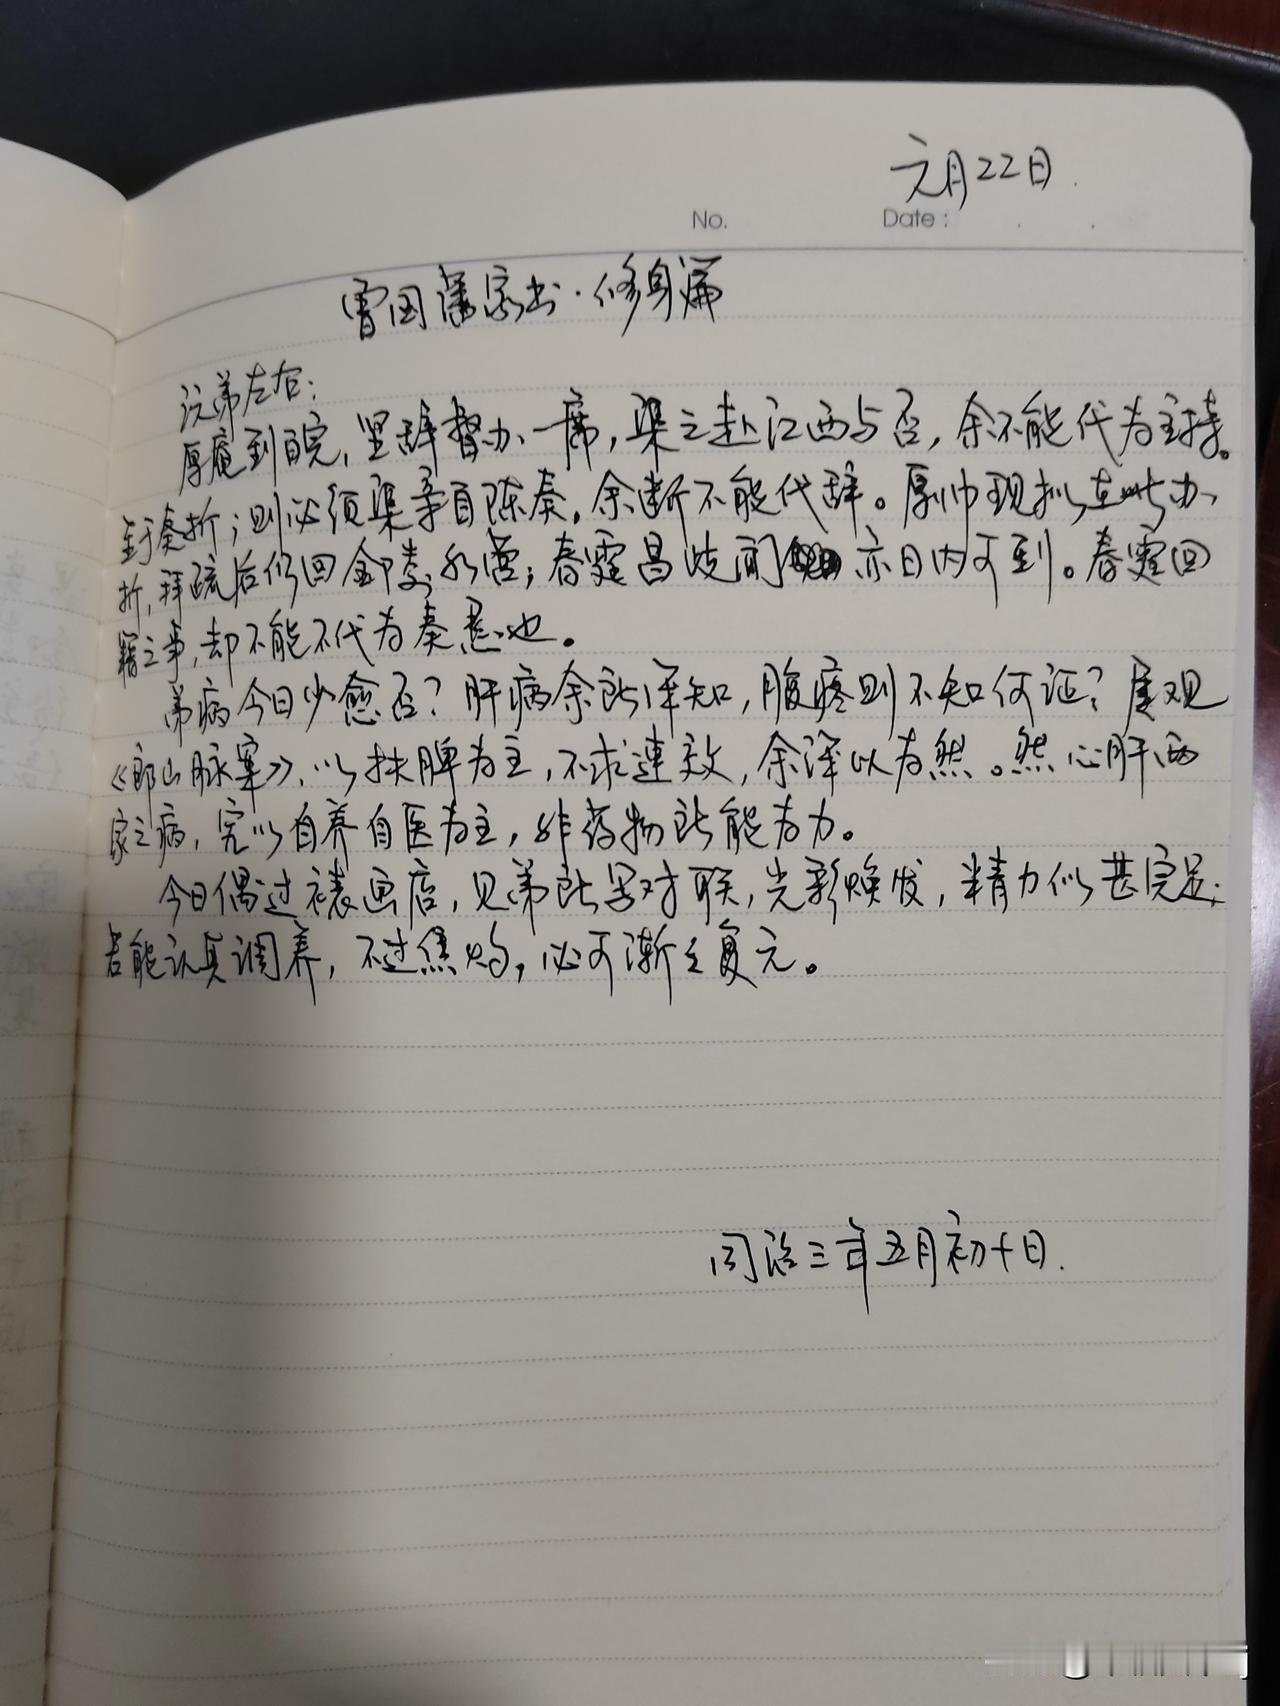 元月22日.
No.
Date :
曾国藩家书·修身篇
沅弟左右:
厚庵到皖,坚辞督办一席,渠之赴江西与否,余不能代为主持。
至于奏折,则必须渠亲自陈奏,余断不能代辞。厚帅现拟在此办
折,拜疏后仍回金陵水营;春霆昌岐闻 亦日内可到。春霆回
籍之事,却不能不代为奏恳也。
弟病今日少愈否?肝病余所深知,腹疼则不知何证?屡观
《郎山脉案》,以扶脾为主,不求速效,余深以为然。然心肝两
家之病,究以自养自医为主,非药物所能为力。
今日偶过裱画店,见弟所写对联,光彩焕发,精力似甚完足;
若能认真调养,不过焦灼,必可渐之复元。
同治三年五月初十日.